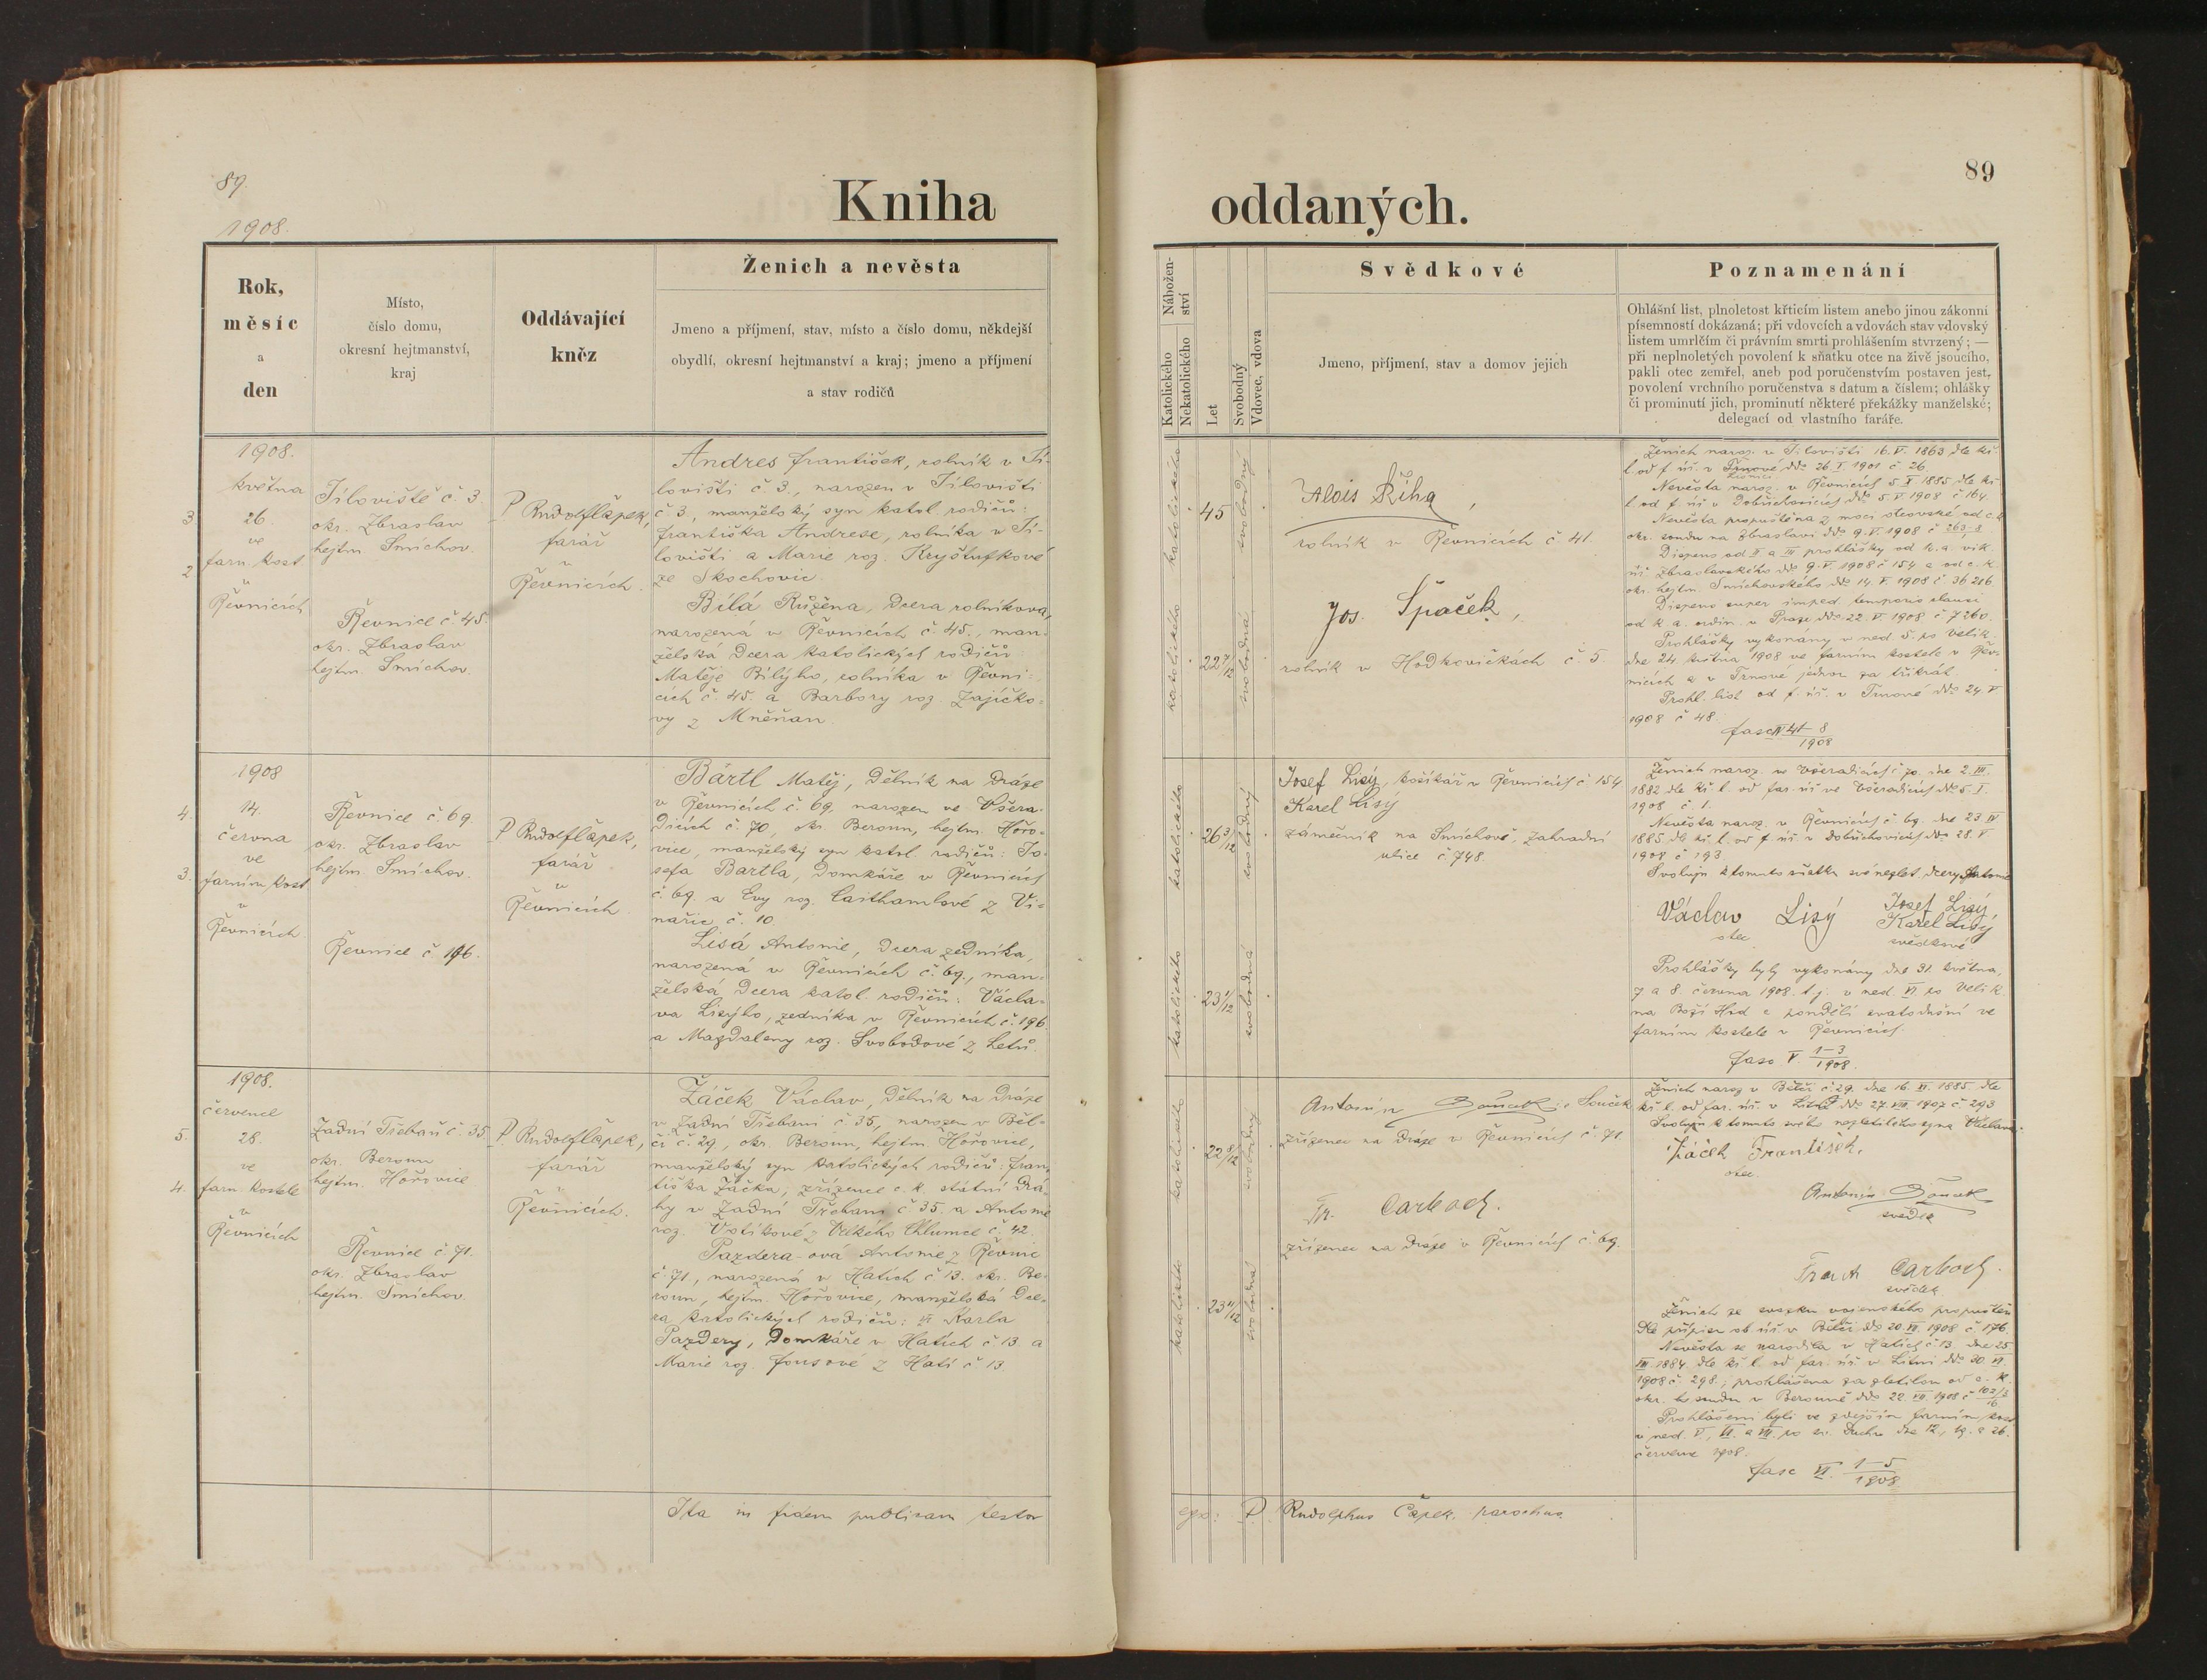 89.
1908.
Kniha
Rok,
měsíc
a
den
Místo,
číslo domu,
okresní hejtmanství,
kraj
Oddávající
kněz
Ženich a nevěsta
Jmeno a příjmení, stav, místo a číslo domu, někdejší
obydlí, okresní hejtmanství a kraj; jmeno a příjmení
a stav rodičů
1908.
května
3. 26.
ve
farn. kost
2
v
Řevnicích
Jíloviště č 3.
okr. Zbraslav
hejtm. Smíchov.
Řevnice č. 45
okr. Zbraslav
hejtm. Smíchov.
P Rudolf Čapek,
farář
v
Řevnicích.
Andres František, rolník v Jí-
lovišti č 3., narozen v Jílovišti
č 3., manželský syn katol. rodičů:
Františka Andrese, rolníka v Jí-
lovišti a Marie roz. Kryštufkové
ze Skochovic.
Bílá Růžena, dcera rolníkova,
narozená v Řevnicích č. 45., man-
želská dcera katolických rodičů:
Matěje Bílýho, rolníka v Řevni-
cích č. 45. a Barbory roz. Zajíčko-
vy z Mněňan.
1908
4. 14.
června
ve
3. farním kost
v
Řevnicích
Řevnice č. 69
okr. Zbraslav
hejtm. Smíchov.
Řevnice č 196.
P Rudolf Čapek,
farář
v
Řevnicích.
Bártl Matěj, dělník na dráze
v Řevnicích č. 69, narozen ve Všera-
dicích č. 70, okr. Beroun, hejtm. Hořo-
vice, manželský syn katol. rodičů: Jo-
sefa Bartla, domkáře v Řevnicích
č. 69 a Evy roz. Casthamlové z Vi-
nařic č. 10
Lisá Antonie, dcera zedníka,
narozená v Řevnicích č. 69., man-
želská dcera katol. rodičů: Václa-
va Lisýho, zedníka v Řevnicích č. 196
a Magdaleny roz. Svobodové z Letů.
1908.
července
5. 28.
ve
4. farn. kostele
v
Řevnicích
Zadní Třebaň č. 35
okr. Beroun
hejtm. Hořovice
Řevnice č. 71.
okr. Zbraslav
hejtm. Smíchov.
P. Rudolf Čapek,
farář
v
Řevnicích.
Žáček Václav, dělník na dráze
v Zadní Třebani č 35, narozen v Běl-
či č. 29., okr. Beroun, hejtm. Hořovice,
manželský syn katolických rodičů: Fran-
tiška Žáčka, zřízence c. k. státní drá-
hy v Zadní Třebani č 35. a Antonie
roz. Votíkové z Velkého Chlumce č. 42.
Pazdera-ová Antonie z Řevnic
č. 71, narozená v Hatích č 13. okr. Be-
roun, hejtm. Hořovice, manželská dce-
ra katolických rodičů: Karla
Pazdery, domkáře v Hatích č. 13 a
Marie roz. Fousové z Hatí č 13.
Ita in fidem publicam testor
89
oddaných.
Nábožen-
ství
Katolického
Nekatolického
Let
Svobodný
Vdovec, vdova
Svědkové
Jmeno, příjmení, stav a domov jejich
Poznamenání
Ohlášní list, plnoletost křticím listem anebo jinou zákonní
písemností dokázaná; při vdovcích a vdovách stav vdovský
listem umrlčím či právním smrti prohlášením stvrzený; —
při neplnoletých povolení k sňatku otce na živě jsoucího,
pakli otec zemřel, aneb pod poručenstvím postaven jest,
povolení vrchního poručenstva s datum a číslem; ohlášky
či prominutí jich, prominutí některé překážky manželské;
delegací od vlastního faráře.
katolického
45
svobodný
katolického
22 7/12
svobodná
Alois Říha,
rolník v Řevnicích č 41.
Jos. Špaček,
rolník v Hodkovičkách č. 5.
Ženich naroz. v Jílovišti 16. V. 1863 dle kř.
l. od f. úř. v Trnové ddo 26. I. 1901 č 26.
Nevěsta naroz. v Řevnicích 5. X 1885 dle kř
l. od f. úř v Dobřichovicích ddo 5. V 1908 č 164.
Nevěsta propuštěna z moci otcovské od c. k.
okr. soudu na Zbraslavi ddo 9. V. 1908 č
Dispens od II a III prohlášky od k. a. vik.
úř. Zbraslavského ddo 9. V. 1908 č 154 a od c. k.
okr. hejtm. Smíchovského ddo 14. V. 1908 č 36216
Dispens super imped. temporis clausi
od k. a. ordin. v Praze ddo 22. V. 1908 č 7260.
Prohlášky vykonány v ned. 5. po Velik.
dne 24. května 1908 ve farním kostele v Řev-
nicích a v Trnové jednou za třikrát.
Prohl. list od f. úř. v Trnové ddo 24. V
1908 č 48.
fasc IV 41-8
1908
katolického
26 3/12
svobodný
katolického
23 1/12
svobodná
Josef Lisý, košíkář v Řevnicích č. 154
Karel Lisý
zámečník na Smíchově, Zahradní
ulice č. 748.
Ženich naroz. ve Všeradicích č 70. dne 2. III.
1882 dle kř. l. od far. úř. ve Všeradicích ddo 5. I.
1908 č. 1.
Nevěsta naroz. v Řevnicích č. 69. dne 23 IV
1885 dle kř. l. od f. úř. v Dobřichovicích ddo 28. V
1908 č 193.
Svoluji k tomuto sňatku své neplet. dcery Antonie
Václav Lisý
otec
Josef Lisý
Karel Lisý
svědkové
Prohlášky byly vykonány dne 31. května,
7 a 8. června 1908. t. j. v ned. VI. po Velik.
na Boží Hod a pondělí svatodušní ve
farním kostele v Řevnicích.
fasc V. 1-3
1908.
katolického
22 8/12
svobodný
katolického
23 4/12
svobodná
Antonín Souček Souček
zřízenec na dráze v Řevnicích č. 71
Fr. Carboch.
zřízenec na dráze v Řevnicích č 69.
Ženich naroz v Bělči č 29. dne 16. XI. 1885. dle
kř. l. od far. úř. v Litni ddo 27. VIII. 1907 č. 293
Svoluji k tomuto svého nezletilého syna Václava.
Žáček František.
otec.
Antonín Souček
svědek
Frant Carboch.
svědek
Ženich ze svazku vojenského propuštěn
dle přípisu ob. úř. v Bělči ddo 20. VI. 1908 č. 176.
Nevěsta se narodila v Hatích č 13. dne 25
III. 1884 dle kř. l. od far. úř. v Litni ddo 30. VI.
1908 č. 298.; prohlášena za zletilou od c. k.
okr. soudu v Berouně ddo 22. VII. 1908 č
Prohlášeni byli ve zdejším farním kost
v ned. V., VI. a VII. po sv. Duchu dne 12., 19. a 26.
července 1908.
fasc VI. 1-5
1908
ego: P. Rudolphus Čapek. parochus